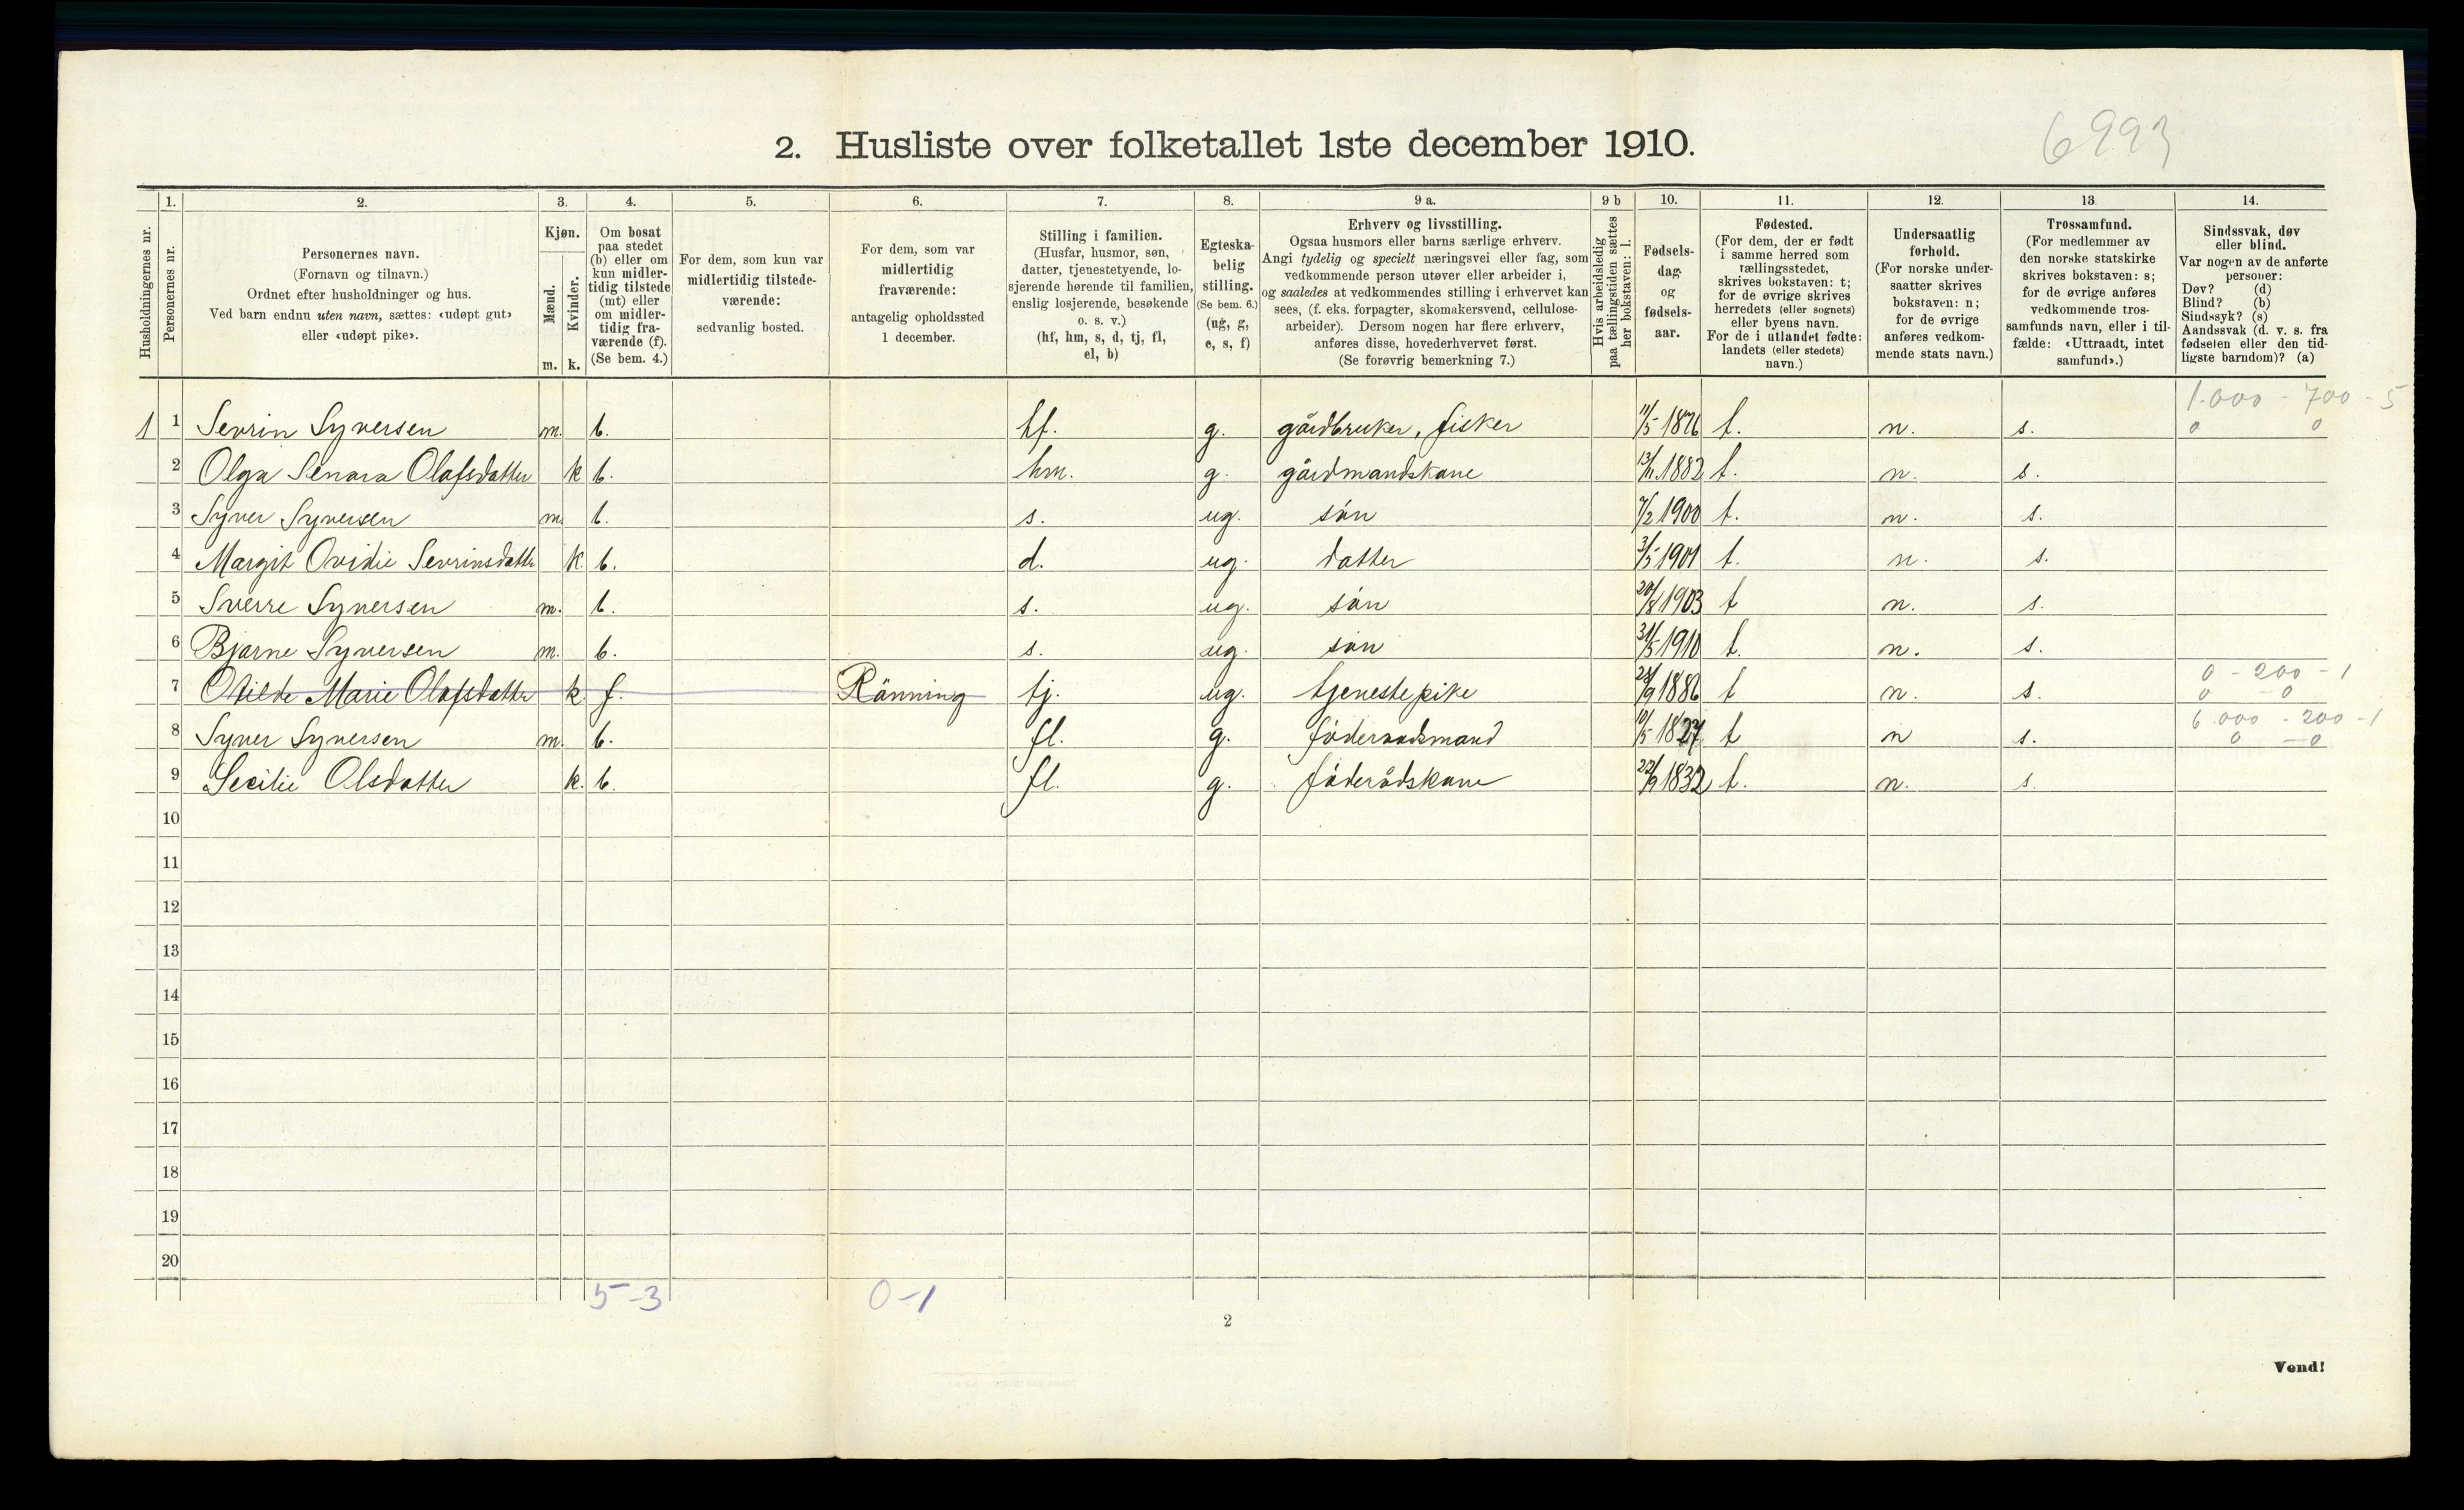 6993
2. Husliste over folketallet 1ste december 1910.
Husholdningernes nr.
1.
Personernes nr.
2.
Personernes navn.
(Fornavn og tilnavn.)
Ordnet efter husholdninger og hus.
Ved barn endnu uten navn, sættes: «udøpt gut»
eller «udøpt pike».
3.
Kjøn.
Mænd.
m.
Kvinder.
k.
4.
Om bosat
paa stedet
(b) eller om
kun midler-
tidig tilstede
(mt) eller
om midler-
tidig fra-
værende (f).
(Se bem. 4.)
5.
For dem, som kun var
midlertidig tilstede-
værende:
sedvanlig bosted.
6.
For dem, som var
midlertidig
fraværende:
antagelig opholdssted
1 december.
7.
Stilling i familien.
(Husfar, husmor, søn,
datter, tjenestetyende, lo-
sjerende hørende til familien,
enslig losjerende, besøkende
o. s. v.)
(hf, hm, s, d, tj, fl,
el, b)
8.
Egteska-
belig
stilling.
(Se bem. 6.)
(ug, g,
e, s, f)
9 a.
Erhverv og livsstilling.
Ogsaa husmors eller barns særlige erhverv.
Angi tydelig og specielt næringsvei eller fag, som
vedkommende person utøver eller arbeider i,
og saaledes at vedkommendes stilling i erhvervet kan
sees, (f. eks. forpagter, skomakersvend, cellulose-
arbeider). Dersom nogen har flere erhverv,
anføres disse, hovederhvervet først.
(Se forøvrig bemerkning 7.)
9 b
Hvis arbeidsledig
paa tællingstiden sættes
her bokstaven: l.
10.
Fødsels-
dag
og
fødsels-
aar.
11.
Fødested.
(For dem, der er født
i samme herred som
tællingsstedet,
skrives bokstaven: t;
for de øvrige skrives
herredets (eller sognets)
eller byens navn.
For de i utlandet fødte:
landets (eller stedets)
navn.)
12.
Undersaatlig
forhold.
(For norske under-
saatter skrives
bokstaven: n;
for de øvrige
anføres vedkom-
mende stats navn.)
13
Trossamfund.
(For medlemmer av
den norske statskirke
skrives bokstaven: s;
for de øvrige anføres
vedkommende tros-
samfunds navn, eller i til-
fælde: «Uttraadt, intet
samfund».)
14.
Sindssvak, døv
eller blind.
Var nogen av de anførte
personer:
Døv? (d)
Blind? (b)
Sindssyk? (s)
Aandssvak (d. v. s. fra
fødselen eller den tid-
ligste barndom)? (a)
1.000 - 700 - 5
1 1 Sevrin Syversen m. b. hf. g. gårdbruker, fisker 11/5 1876 t. n. s. 0 0
2 Olga Senara Olafsdatter k b. hm. g. gårdmandskone 13/11 1882 t. n. s.
3 Syver Syversen m. b. s. ug. sön 7/2 1900 t. n. s.
4 Margit Ovidie Sevrinsdatter k. b. d. ug. datter 3/5 1901 t. n. s.
5 Sverre Syversen m. b. s. ug. sön 20/8 1903 t n. s.
6 Bjarne Syversen m. b. s. ug. sön 31/5 1910 t. n. s.
0 - 200 - 1
7 Otilde Marie Olafsdatter k. f. Rönning tj. ug. tjenestepike 28/9 1886 t n. s. 0 - 0
6.000 - 200 - 1
8 Syver Syversen m. b. fl. g. föderaadsmand 10/5 1827 t n s. 0 - 0
9 Secilie Olsdatter k. b. fl. g. föderådskone 22/9 1832 t. n. s.
10
11
12
13
14
15
16
17
18
19
20
5-3 0-1
2
Vend!